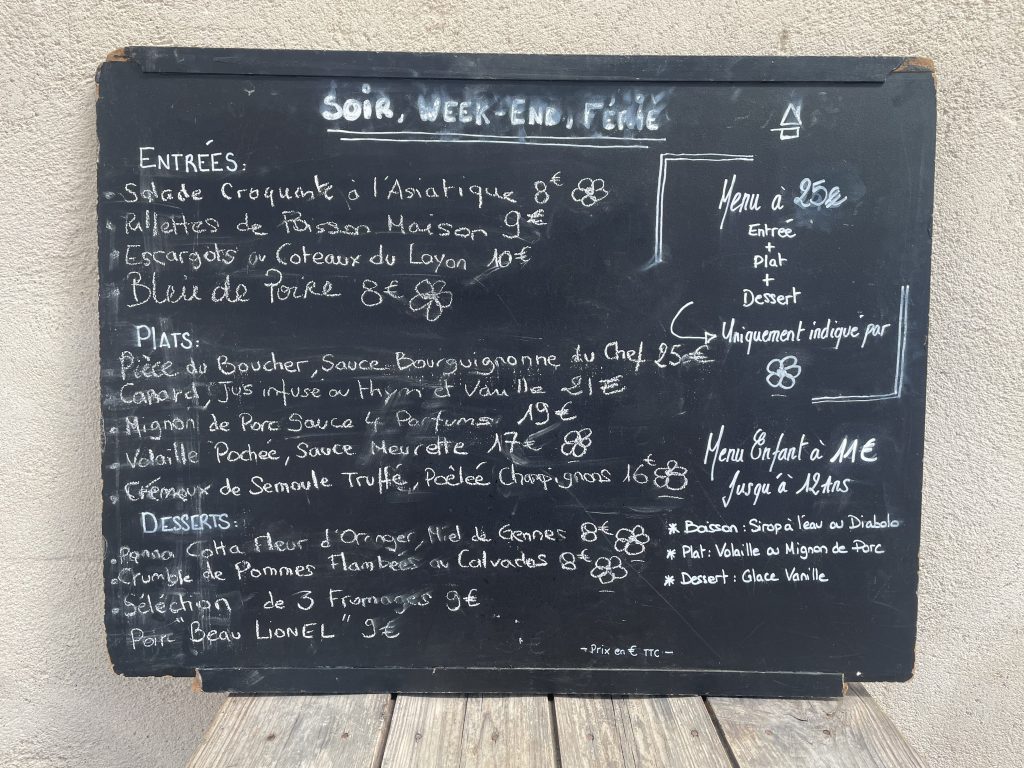 SOIR, WEEK-END, FÉRIÉ
ENTRÉES:
• Salade Croquante à l'Asiatique 8€
• Rillettes de Poisson Maison 9€
• Escargots au Coteaux du Layon 10€
Bleu de Poire 8€
PLATS:
Pièce du Boucher, Sauce Bourguignonne du Chef 25€
Canard, Jus infusé au thym et Vanille 21€
• Mignon de Porc Sauce 4 Parfums 19€
• Volaille Pochée, Sauce Meurette 17€
• Crémeux de Semoule Truffé, Poêlée Champignons 16€
DESSERTS:
• Panna Cotta Fleur d'Oranger, Miel de Gennes 8€
• Crumble de Pommes Flambées au Calvados 8€
• Séléction de 3 Fromages 9€
• Poire "Beau LIONEL" 9€
Menu à 25€
Entrée
+
Plat
+
Dessert
Uniquement indiqué par
Menu Enfant à 11€
Jusqu'à 12 Ans
* Boisson : Sirop à l'eau ou Diabolo
* Plat : Volaille ou Mignon de Porc
* Dessert : Glace Vanille
- Prix en € TTC -